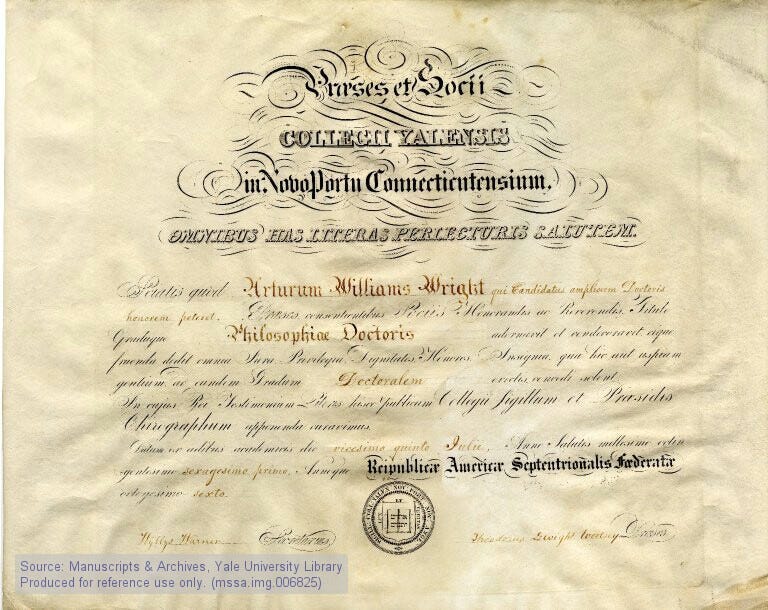 Præses et Socii
COLLEGII YALENSIS
in Novo Portu Connecticutensium,
OMNIBUS HAS LITERAS PERLECTURIS SALUTEM.
Sciatis quod Arturum Williams Wright qui Candidatus ampliorem Doctoris
honorem peteret, Præses consentientibus Sociis Honorandis ac Reverendis, Titulo
Graduque Philosophiæ Doctoris adornavit et condecoravit eique
fruenda dedit omnia Jura, Privilegia, Dignitates, Honores, Insignia, quæ hic aut uspiam
gentium, ad eundem Gradum Doctoralem evectis, concedi solent.
In cujus Rei Testimonium Literis hisce publicum Collegii Sigillum et Præsidis
Chirographum apponenda curavimus.
Datum ex ædibus academicis die vicesimo quinto Julii, Anno Salutis millesimo octin
gentesimo sexagesimo primo, Annoque Reipublicæ Americæ Septentrionalis Fœderatæ
octogesimo sexto.
Wyllys Warner Theodorus Dwight Woolsey Præses
Source: Manuscripts & Archives, Yale University Library
Produced for reference use only. (mssa.img.006825)